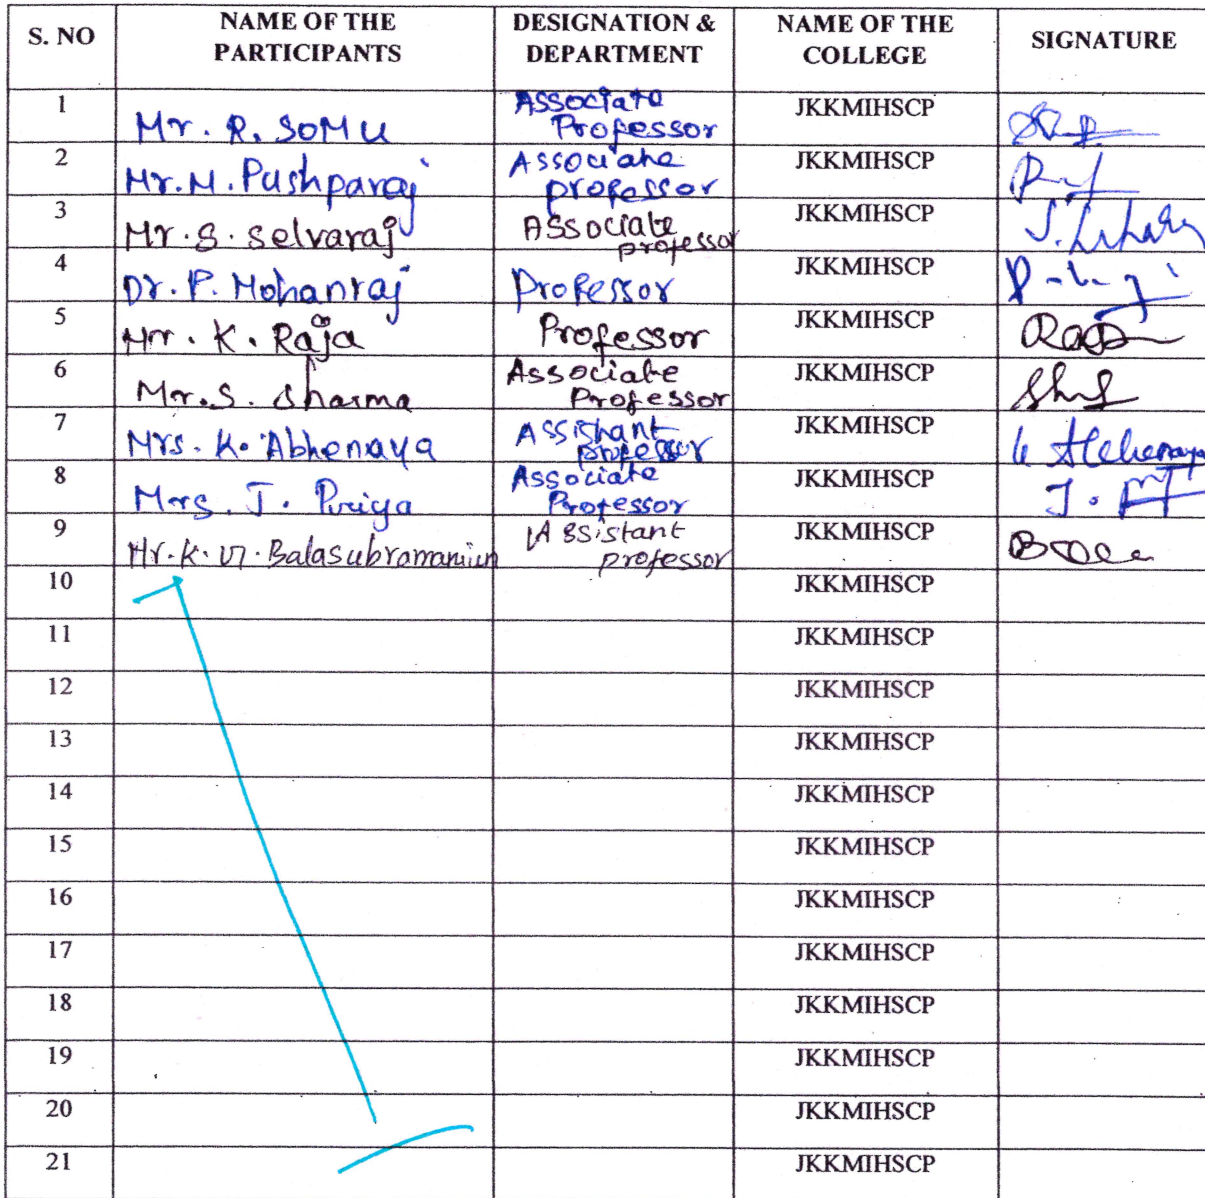 S. NO NAME OF THE PARTICIPANTS DESIGNATION & DEPARTMENT NAME OF THE COLLEGE SIGNATURE
1 Mr. R. SOMU Associate Professor JKKMIHSCP
2 Mr. M. Pushparaj Associate professor JKKMIHSCP
3 Mr. S. Selvaraj Associate professor JKKMIHSCP
4 Dr. P. Mohanraj Professor JKKMIHSCP
5 Mr. K. Raja Professor JKKMIHSCP
6 Mr. S. Sharma Associate Professor JKKMIHSCP
7 Mrs. K. Abhenaya Assistant professor JKKMIHSCP
8 Mrs. J. Priya Associate Professor JKKMIHSCP
9 Mr. K. Balasubramaniun Assistant professor JKKMIHSCP
10 JKKMIHSCP
11 JKKMIHSCP
12 JKKMIHSCP
13 JKKMIHSCP
14 JKKMIHSCP
15 JKKMIHSCP
16 JKKMIHSCP
17 JKKMIHSCP
18 JKKMIHSCP
19 JKKMIHSCP
20 JKKMIHSCP
21 JKKMIHSCP